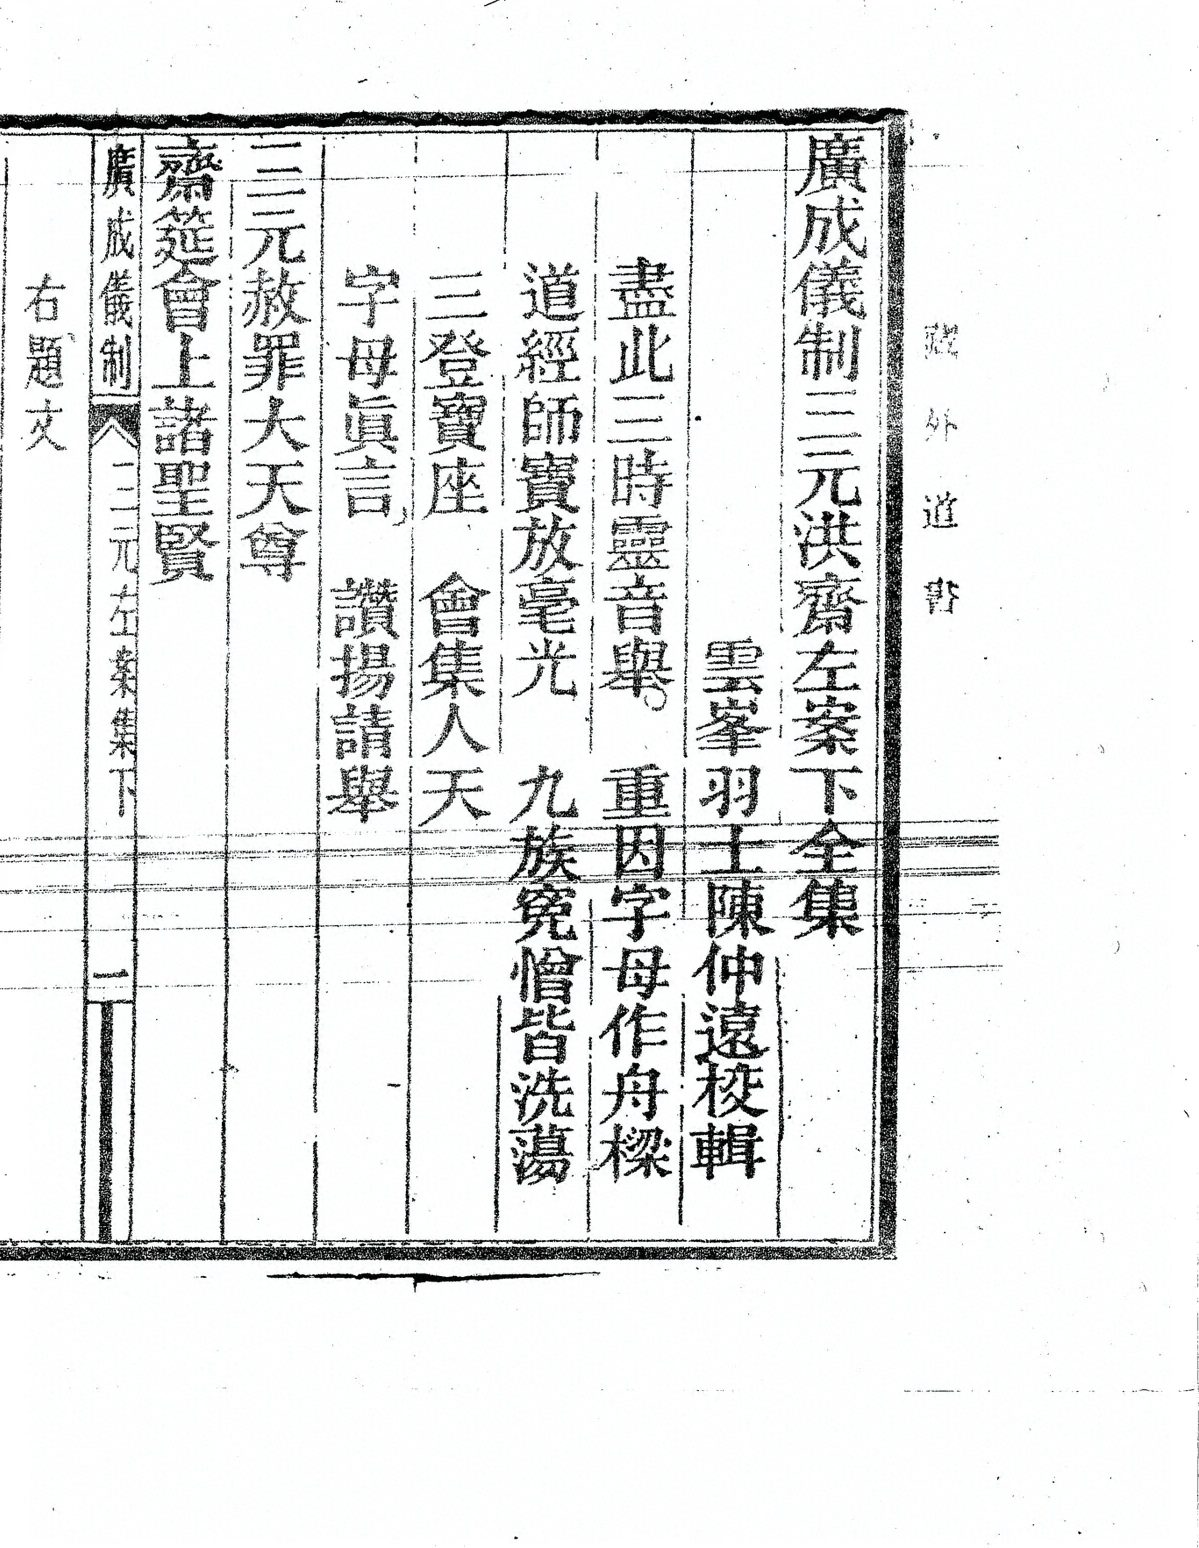 藏外道書
廣成儀制三元洪齋左案下全集
雲峯羽士陳仲遠校輯
盡此三時靈音舉。 重因字母作舟樑
道經師寶放毫光 九族寃憎皆洗蕩
三登寶座 會集人天
字母眞言 讚揚請舉
三元赦罪大天尊
齋筵會上諸聖賢
廣成儀制 三元左案集下 一
右題文